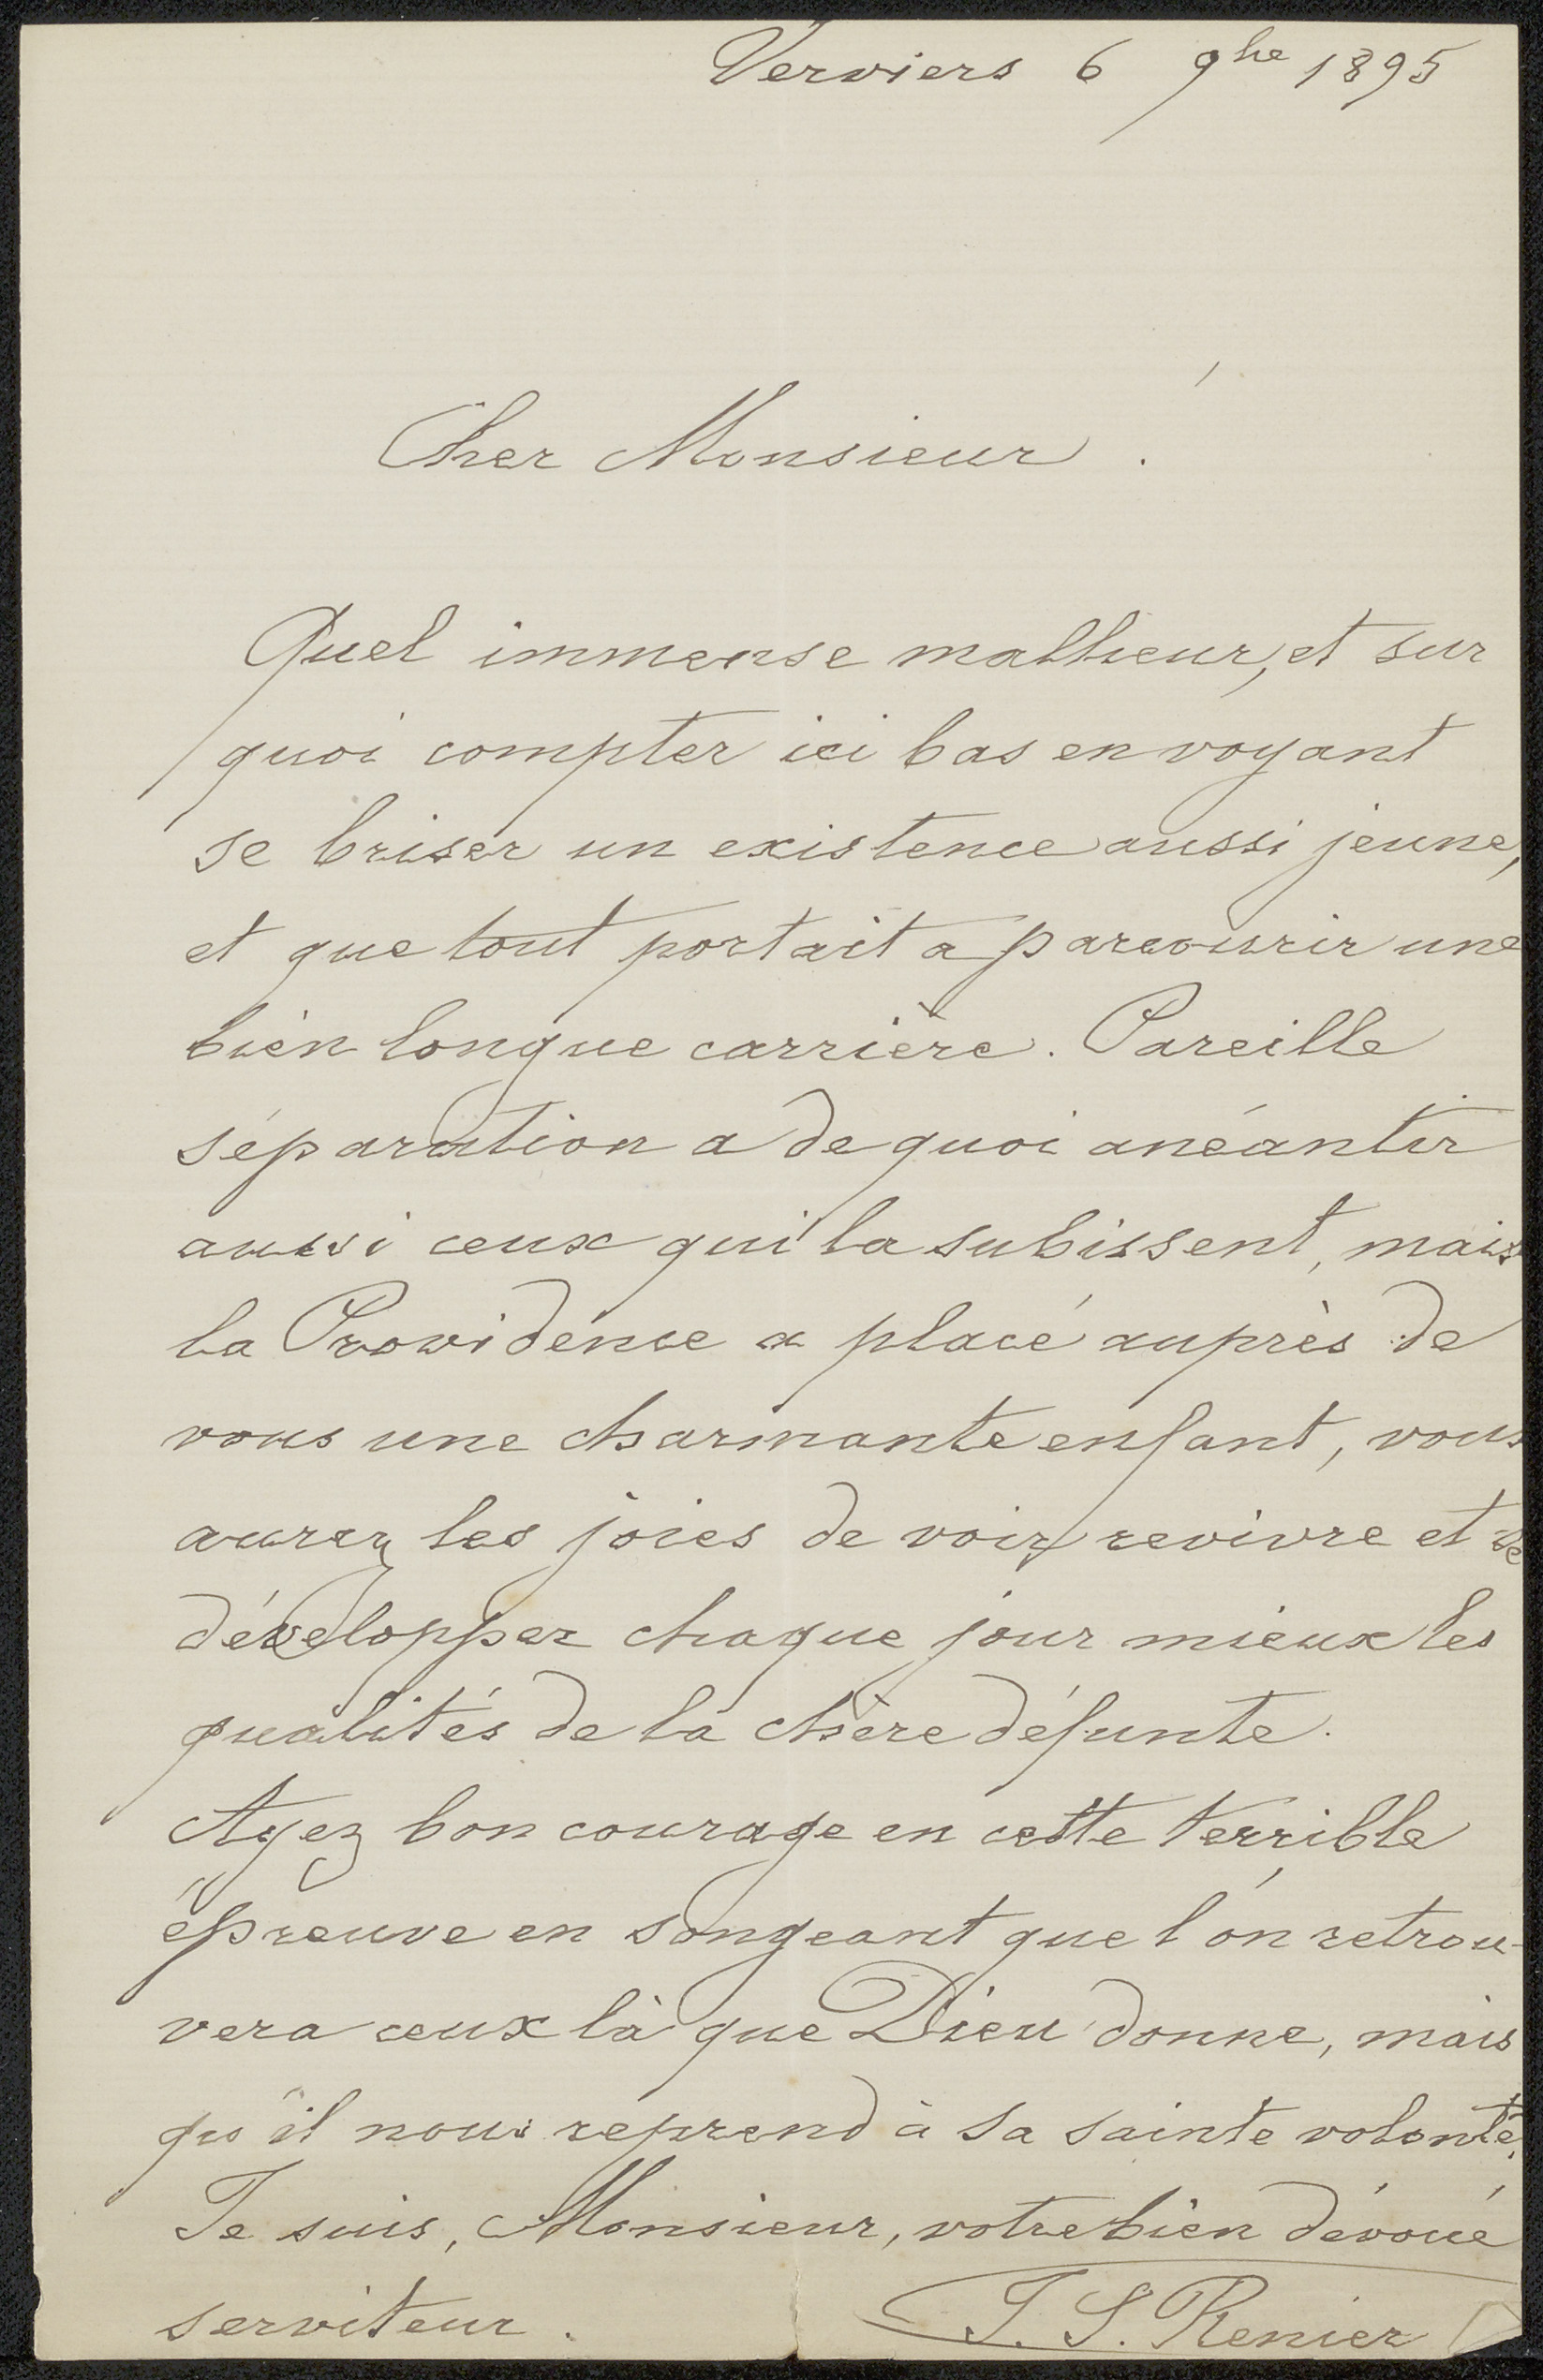 Verviers 6 9bre 1895
Cher Monsieur.
Quel immense malheur, et sur
quoi compter ici bas en voyant
se briser un existence aussi jeune,
et que tout portait a parcourir une
bien longue carrière. Pareille
séparation a de quoi anéantir
aussi ceux qui la subissent, mais
la Providence a placé auprès de
vous une charmante enfant, vous
aurez les joies de voir revivre et se
développer chaque jour mieux les
qualités de la chère défunte.
Ayez bon courage en cette terrible
épreuve en songeant que l'on retrou-
vera ceux là que Dieu donne, mais
qu'il nous reprend à sa sainte volonté.
Je suis, Monsieur, votre bien dévoué
serviteur. J. S. Renier